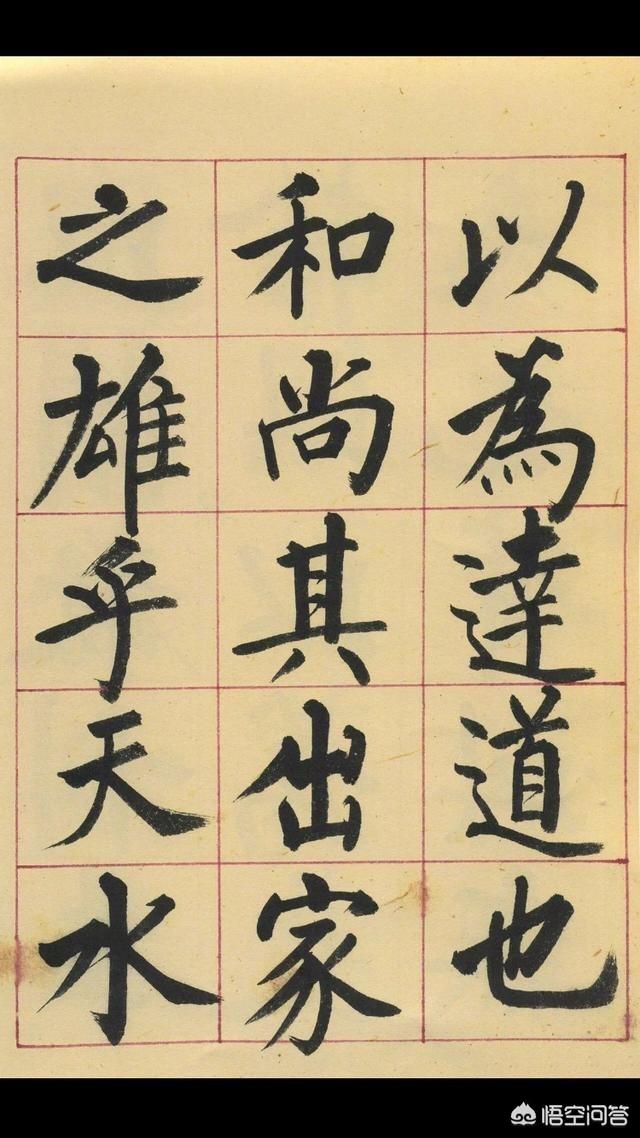 以為達道也
和尚其出家
之雄乎天水
悟空问答